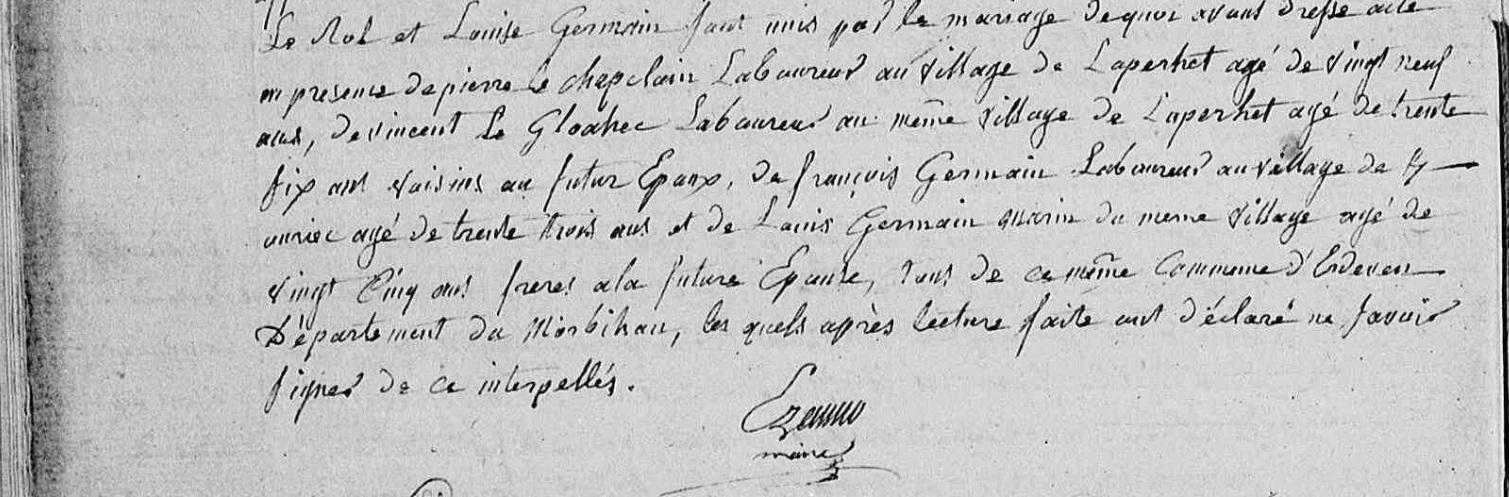 Le Rol et Louise Germain sont unis par le mariage de quoi avons dressé acte
en presence de pierre Le chapelain Laboureur au village de Laperhet agé de vingt neuf
ans, de vincent Le Gloahec Laboureur au même village de Laperhet agé de trente
six ans voisins au futur Epoux, de françois Germain Laboureur au village de
agé de trente trois ans et de Louis Germain marin du meme village agé de
vingt Cinq ans freres a la future Epouse, tous de ce même Commune d'Erdeven
Département du Morbihan, les quels après lecture faite ont déclaré ne savoir
signer de ce interpellés.
Ezanno
maire